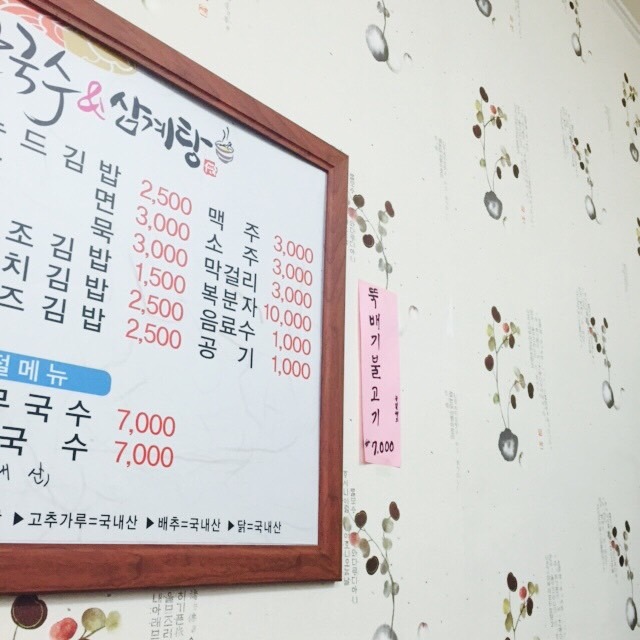 국수 & 삼계탕
드김밥 2,500
면 3,000
묵 3,000
조김밥 1,500
치김밥 2,500
즈김밥 2,500
맥주 3,000
소주 3,000
막걸리 3,000
복분자 10,000
음료수 1,000
공기 1,000
절메뉴
국수 7,000
국수 7,000
산)
▶고추가루=국내산 ▶배추=국내산 ▶닭=국내산
뚝배기불고기
₩7.000